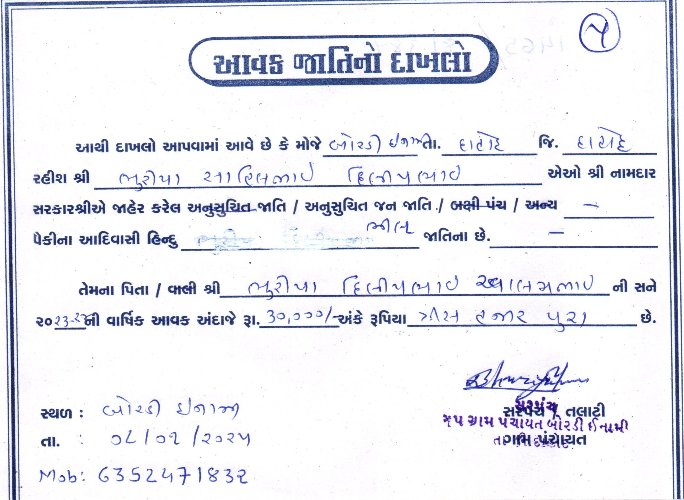 ૫
આવક જાતિનો દાખલો
આથી દાખલો આપવામાં આવે છે કે મોજે બોરડી ઇનામી તા. દાહોદ જિ. દાહોદ
રહીશ શ્રી ભુરીયા સાહિલભાઇ દિલીપભાઇ એઓ શ્રી નામદાર
સરકારશ્રીએ જાહેર કરેલ અનુસુચિત જાતિ / અનુસુચિત જન જાતિ / બક્ષી પંચ / અન્ય –
પૈકીના આદિવાસી હિન્દુ ભીલ જાતિના છે. –
તેમના પિતા / વાલી શ્રી ભુરીયા દિલીપભાઇ ની સને
૨૦૨૩-૨૪ની વાર્ષિક આવક અંદાજે રૂા. ૩૦,૦૦૦/- અંકે રૂપિયા ત્રીસ હજાર પુરા છે.
સ્થળ : બોરડી ઇનામી
સરપંચ / તલાટી
સરપંચ
ગૃપ ગ્રામ પંચાયત બોરડી ઈનામી
તા. : ૦૮/૦૧/૨૦૨૫
ગ્રામ પંચાયત
Mob: 6352471832